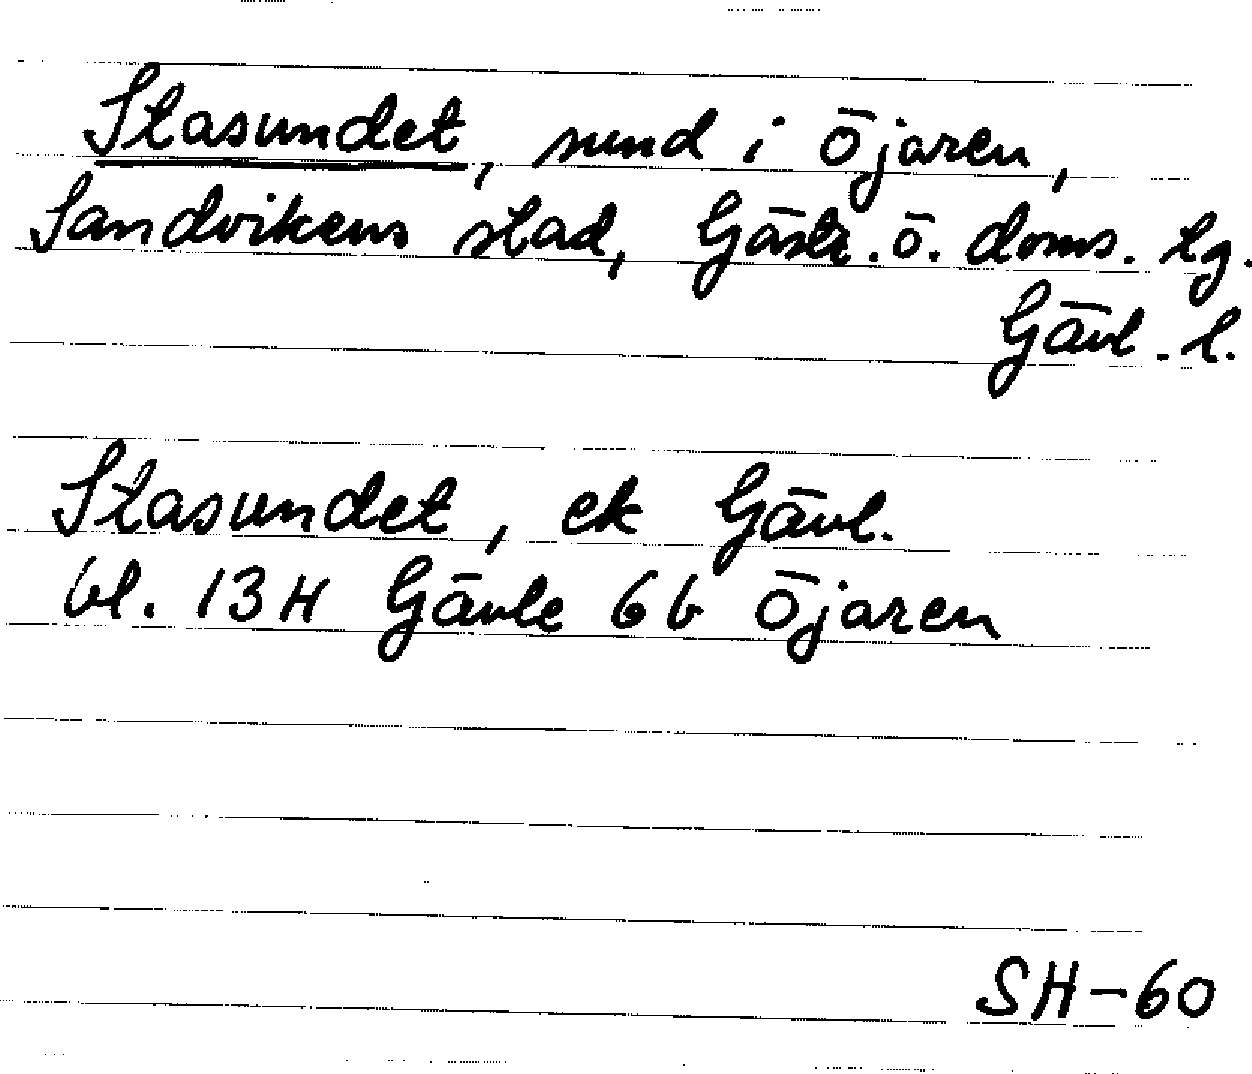 Stasundet, sund i Öjaren,
Sandvikens stad, Gästr. ö. doms. tg.
Gävl. l.
Stasundet, ek Gävl.
bl. 13H Gävle 6b Öjaren
SH-60